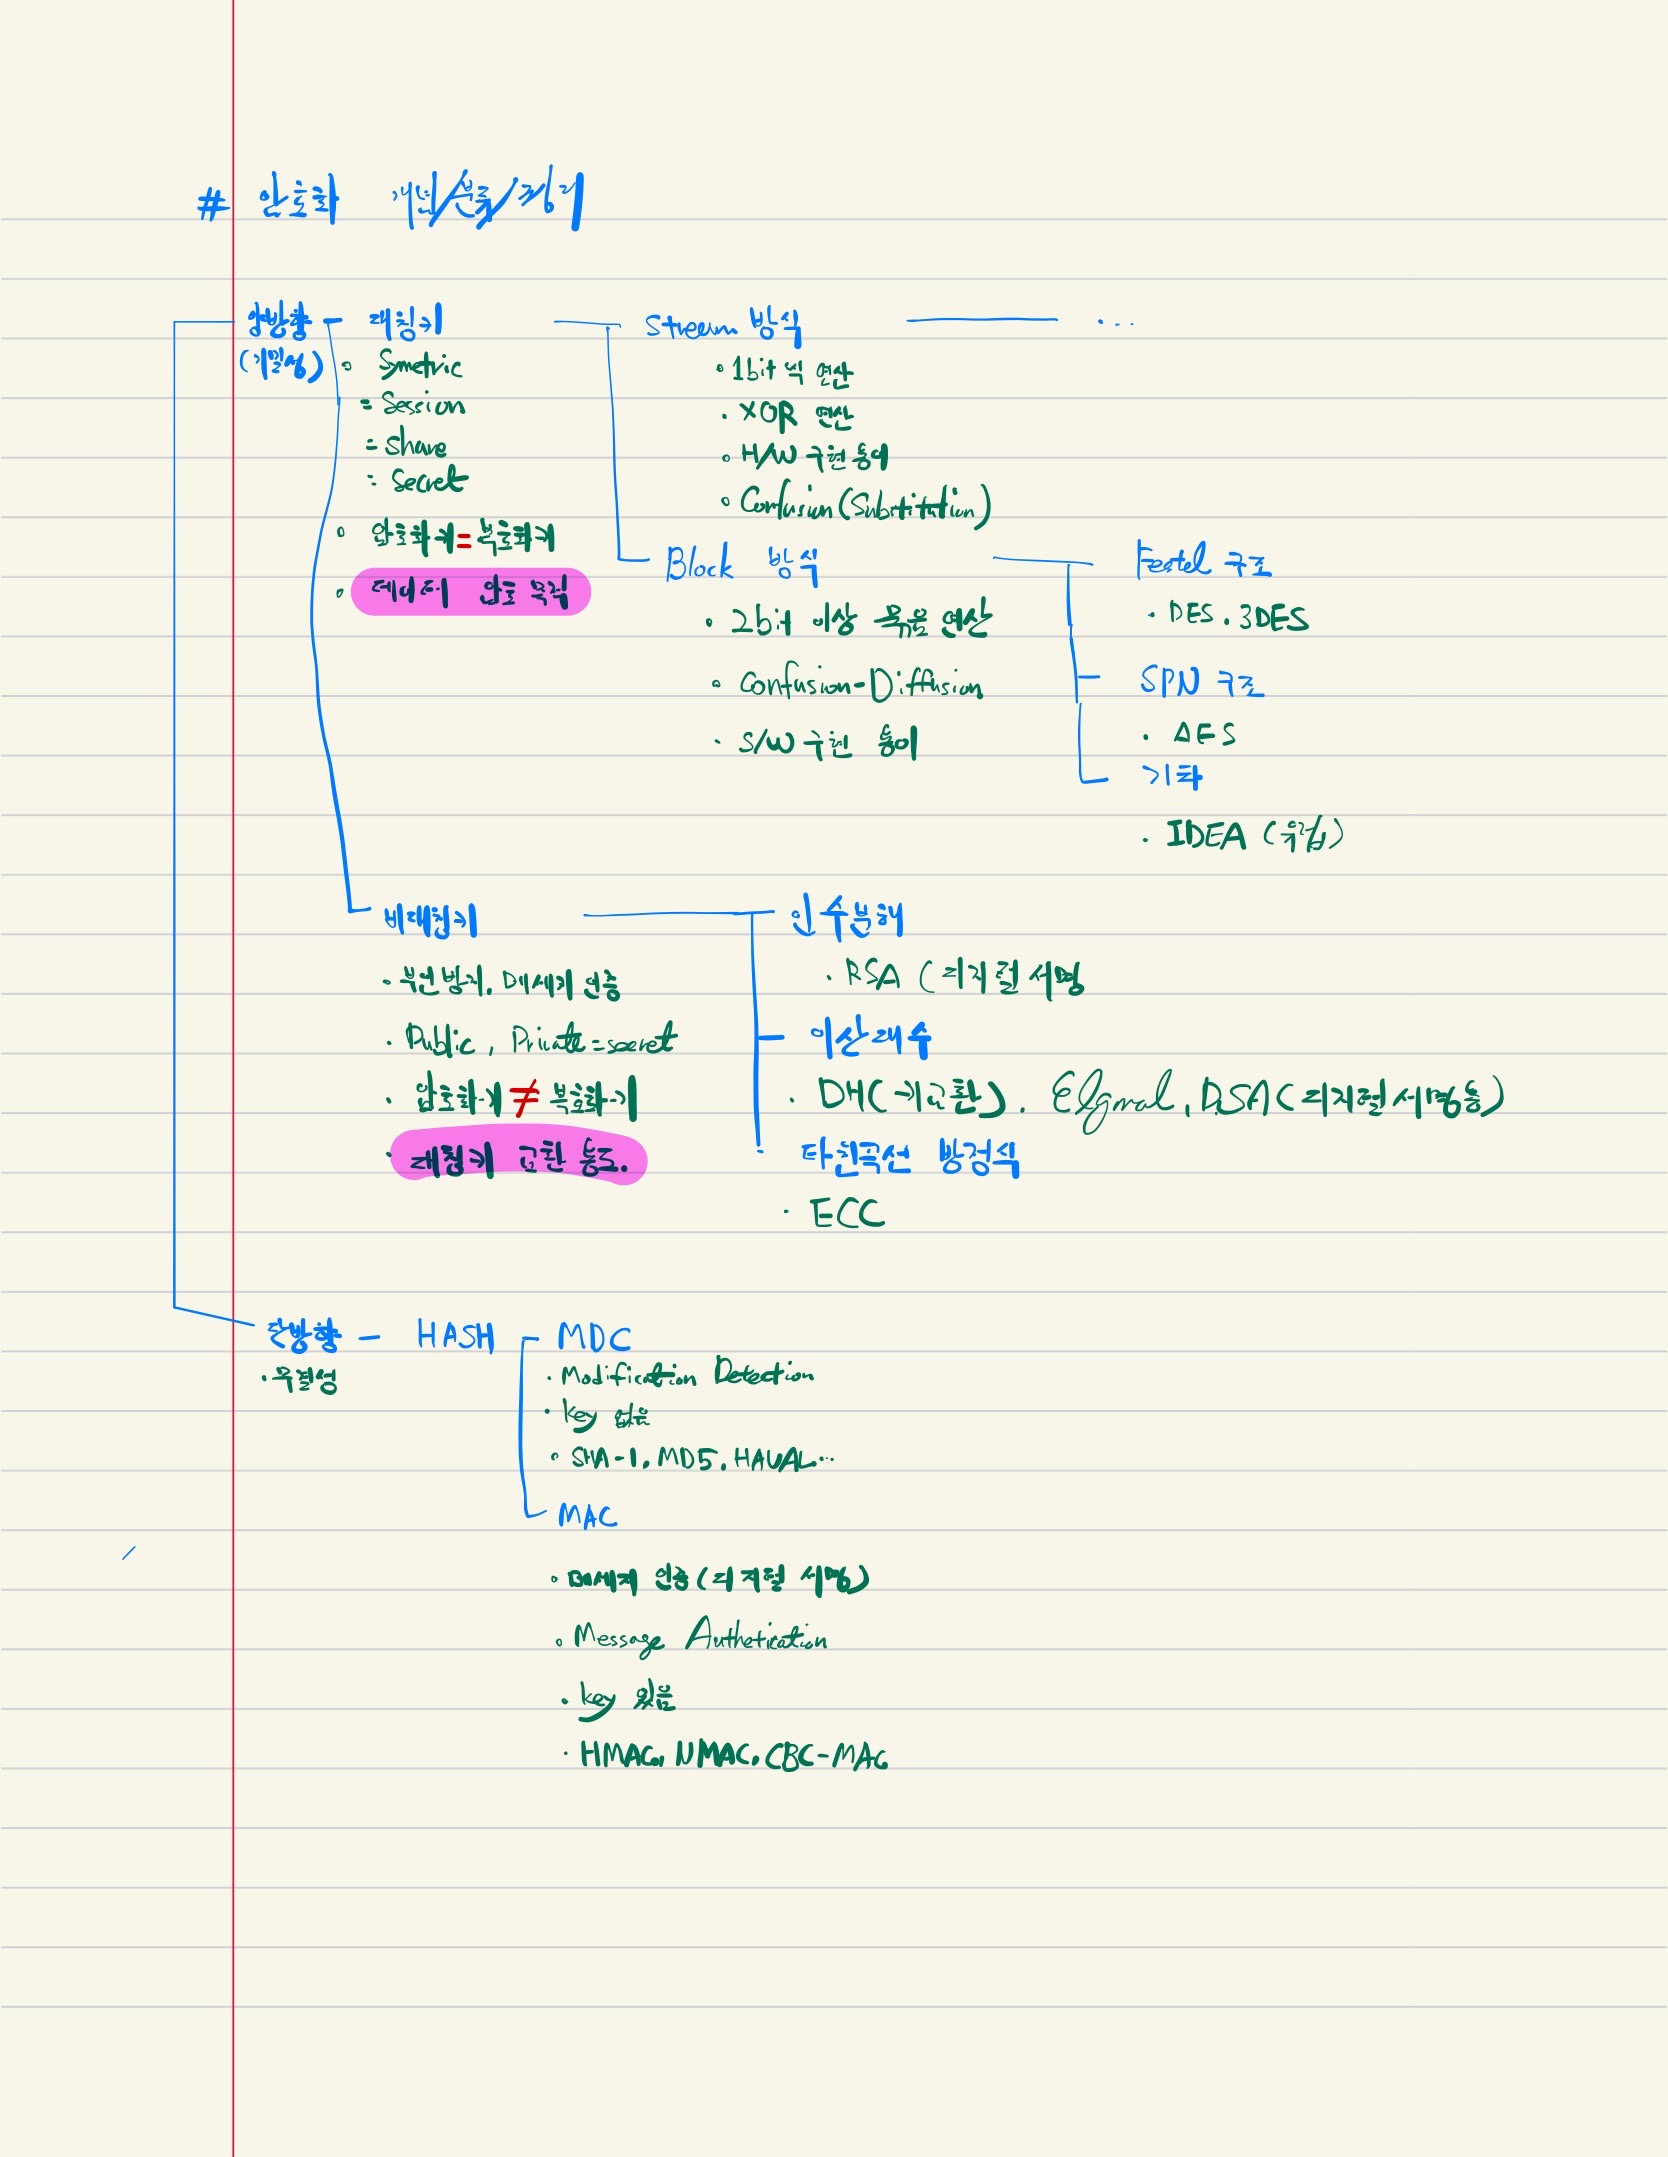 # 암호화 개념/분류/정리
양방향 - 대칭키
(기밀성)
◦ Symetric
= Session
= Share
= Secret
◦ 암호화키=복호화키
◦ 데이터 암호 목적
Stream 방식 ...
◦ 1bit 씩 연산
· XOR 연산
◦ H/W 구현 용이
◦ Confusion(Substitution)
Block 방식
· 2bit 이상 묶음 연산
◦ Confusion-Diffusion
· S/W 구현 용이
Feistel 구조
· DES. 3DES
SPN 구조
· AES
기타
· IDEA (유럽)
비대칭키
· 부인방지. 메세지 인증
· Public, Private=secret
· 암호화키≠복호화키
· 대칭키 교환 용도.
인수분해
· RSA (디지털 서명
이산대수
· DH(키교환). Elgmal, DSA(디지털서명용)
타원곡선 방정식
· ECC
단방향 - HASH
· 무결성
MDC
· Modification Detection
· key 없음
◦ SHA-1. MD5. HAVAL...
MAC
· 메세지 인증(디지털 서명)
◦ Message Authetication
· key 있음
· HMAC, NMAC, CBC-MAC